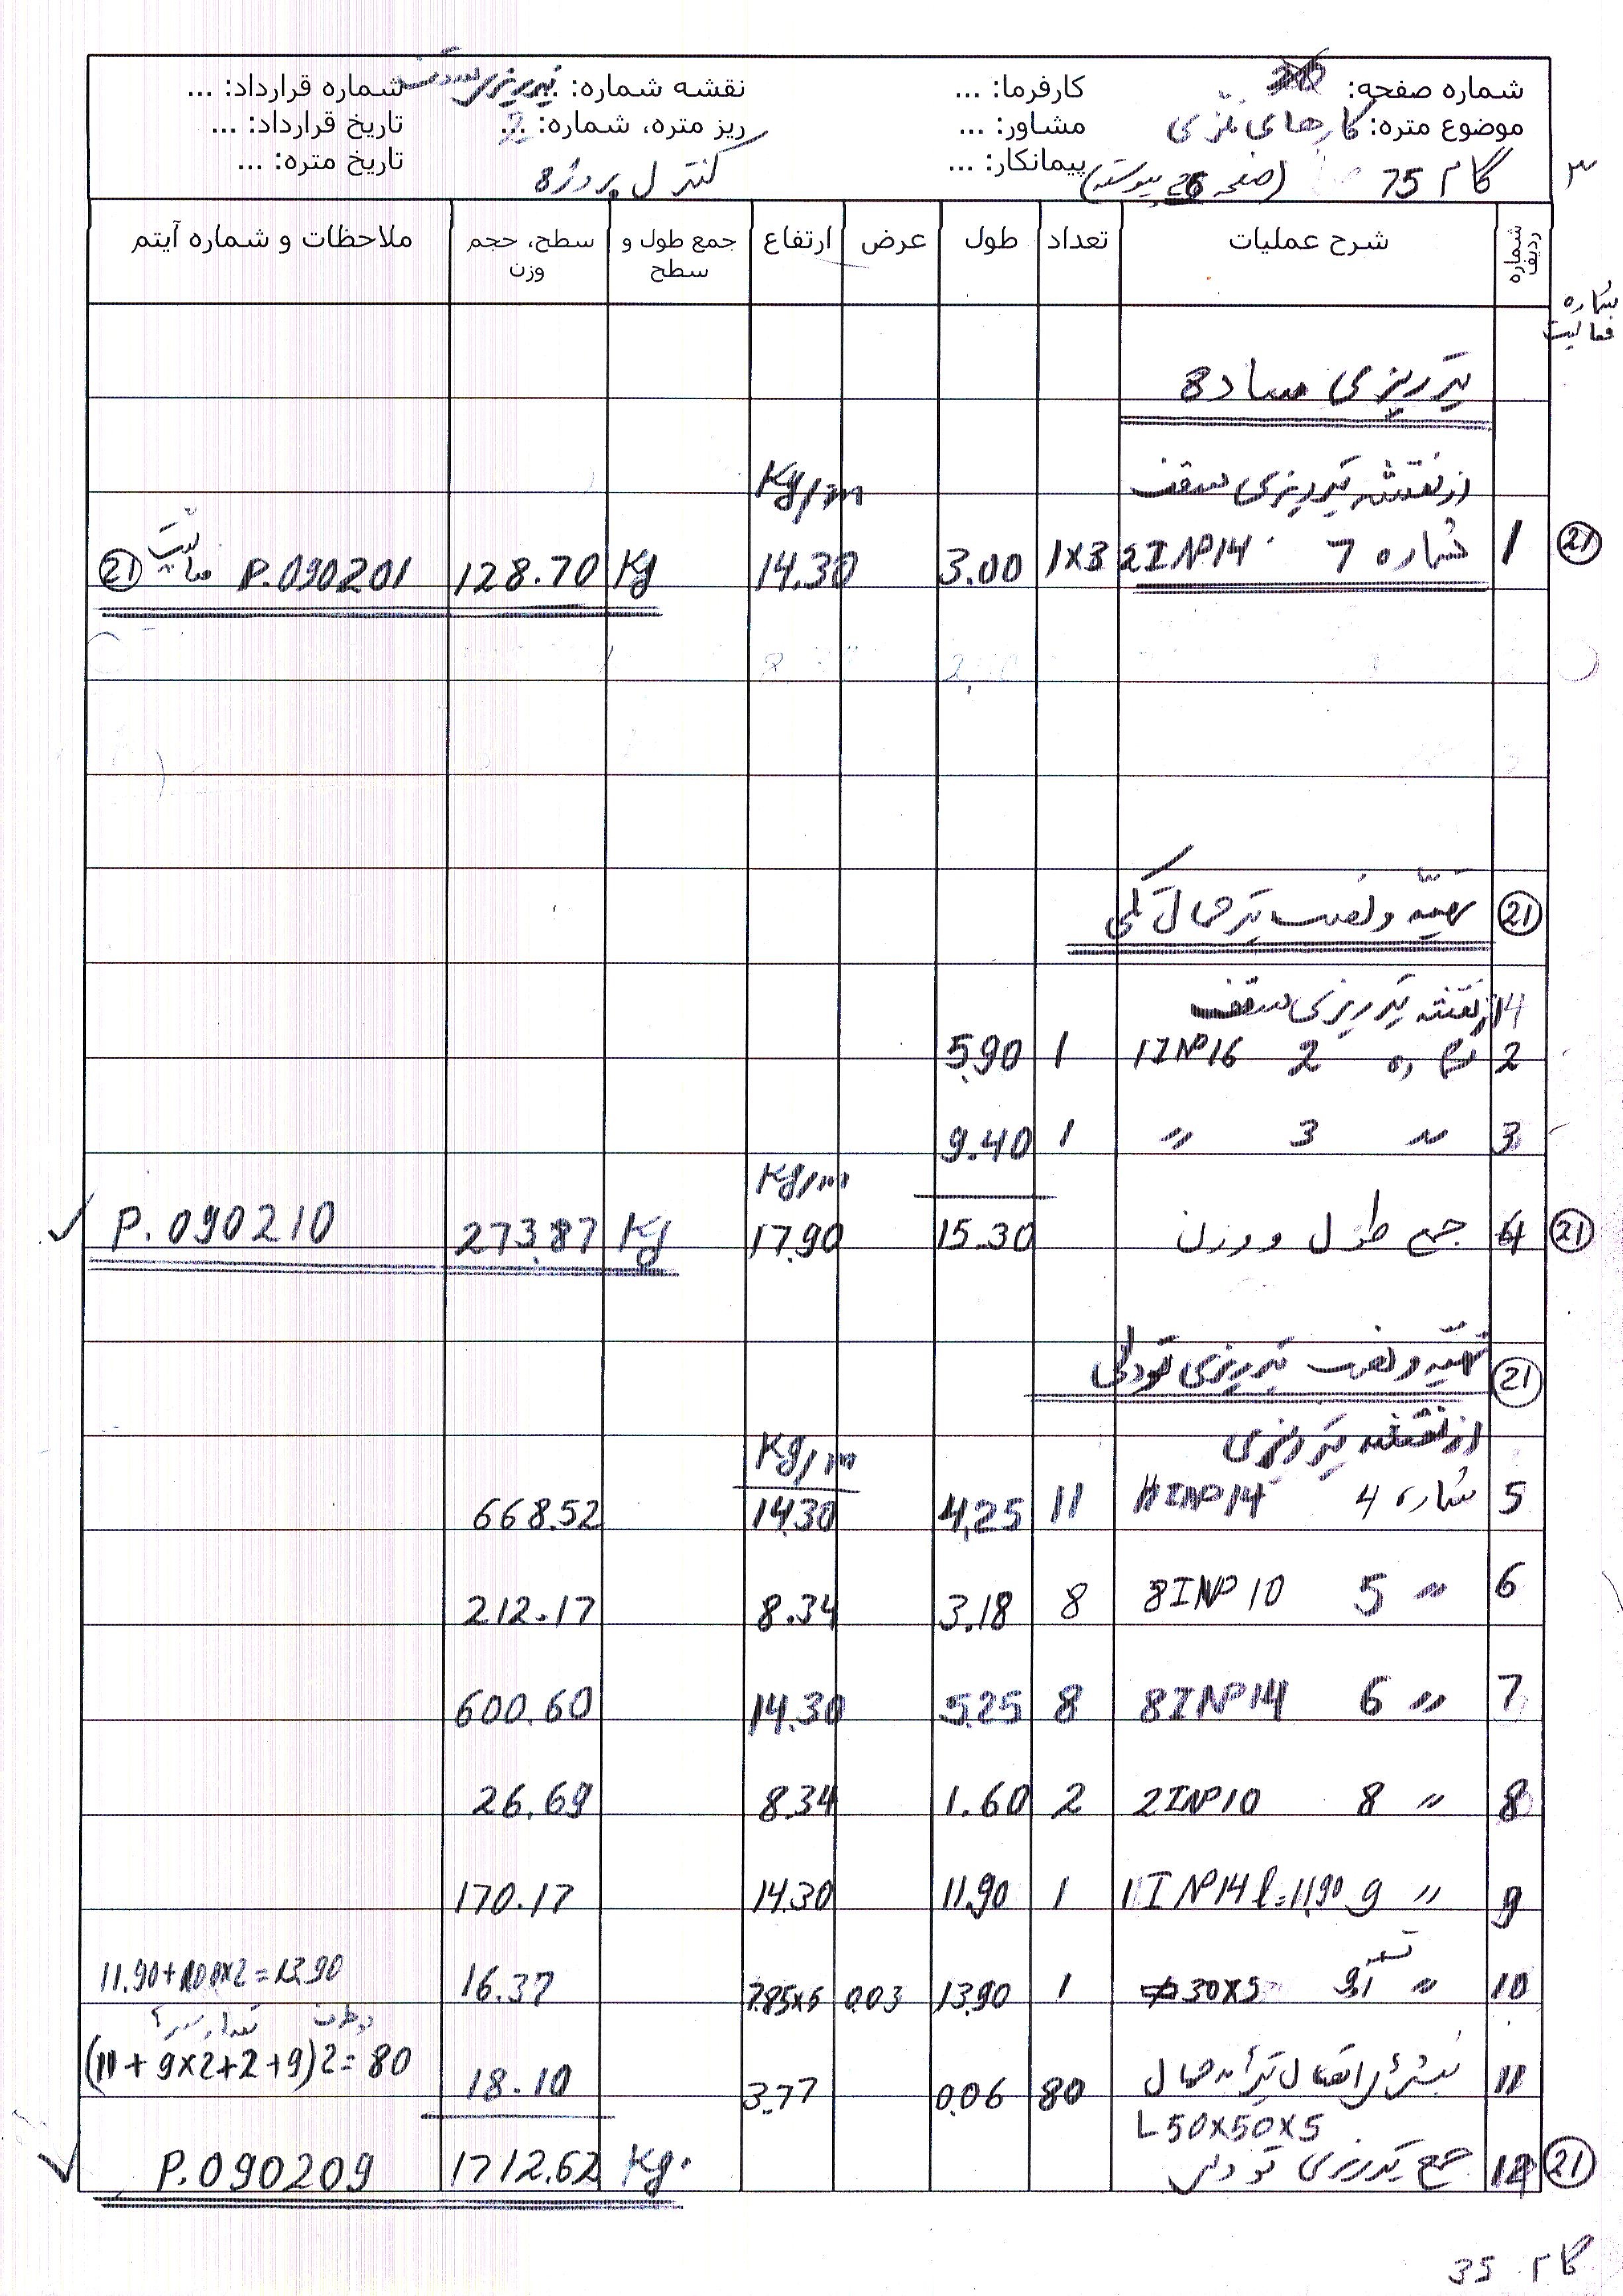 شماره صفحه:
کارفرما: ...
نقشه شماره: ... تیرریزی
شماره قرارداد: ...
موضوع متره: کارهای فلزی
مشاور: ...
ریز متره، شماره: ... 2
تاریخ قرارداد: ...
گام 75 (صفحه 26 پیوست)
پیمانکار: ...
کنترل پروژه
تاریخ متره: ...
۳
شماره ردیف
شرح عملیات
تعداد
طول
عرض
ارتفاع
جمع طول و سطح
سطح، حجم وزن
ملاحظات و شماره آیتم
شماره فعالیت
تیرریزی ساده
از نقشه تیرریزی سقف
Kg/m
(21) 1 شماره 7 2INP14 1×3 3.00 14.30 Kg 128.70 P.090201 فعالیت (21)
(21) تهیه و نصب تیر حمال تکی
از نقشه تیرریزی سقف
2 شماره 2 1INP16 1 5.90
3 〃 3 〃 1 9.40
Kg/m
(21) 4 جمع طول و وزن 15.30 17.90 Kg 273.87 P.090210 ✓
(21) تهیه و نصب تیرریزی تودلی
از نقشه تیرریزی
Kg/m
5 شماره 4 11INP14 11 4.25 14.30 668.52
6 〃 5 8INP10 8 3.18 8.34 212.17
7 〃 6 8INP14 8 5.25 14.30 600.60
8 〃 8 2INP10 2 1.60 8.34 26.69
9 〃 9 1INP14 l=11.90 1 11.90 14.30 170.17
10 〃 30×5 1 13.90 0.03 7.85×5 16.37 11.90+1.00×2=13.90
دو طرف
11 نبشی اتصال تیر به حمال 80 0.06 3.77 18.10 (11+9×2+2+9)2=80
L50×50×5
(21) 12 جمع تیرریزی تودلی Kg. 1712.62 P.090209 ✓
گام 35